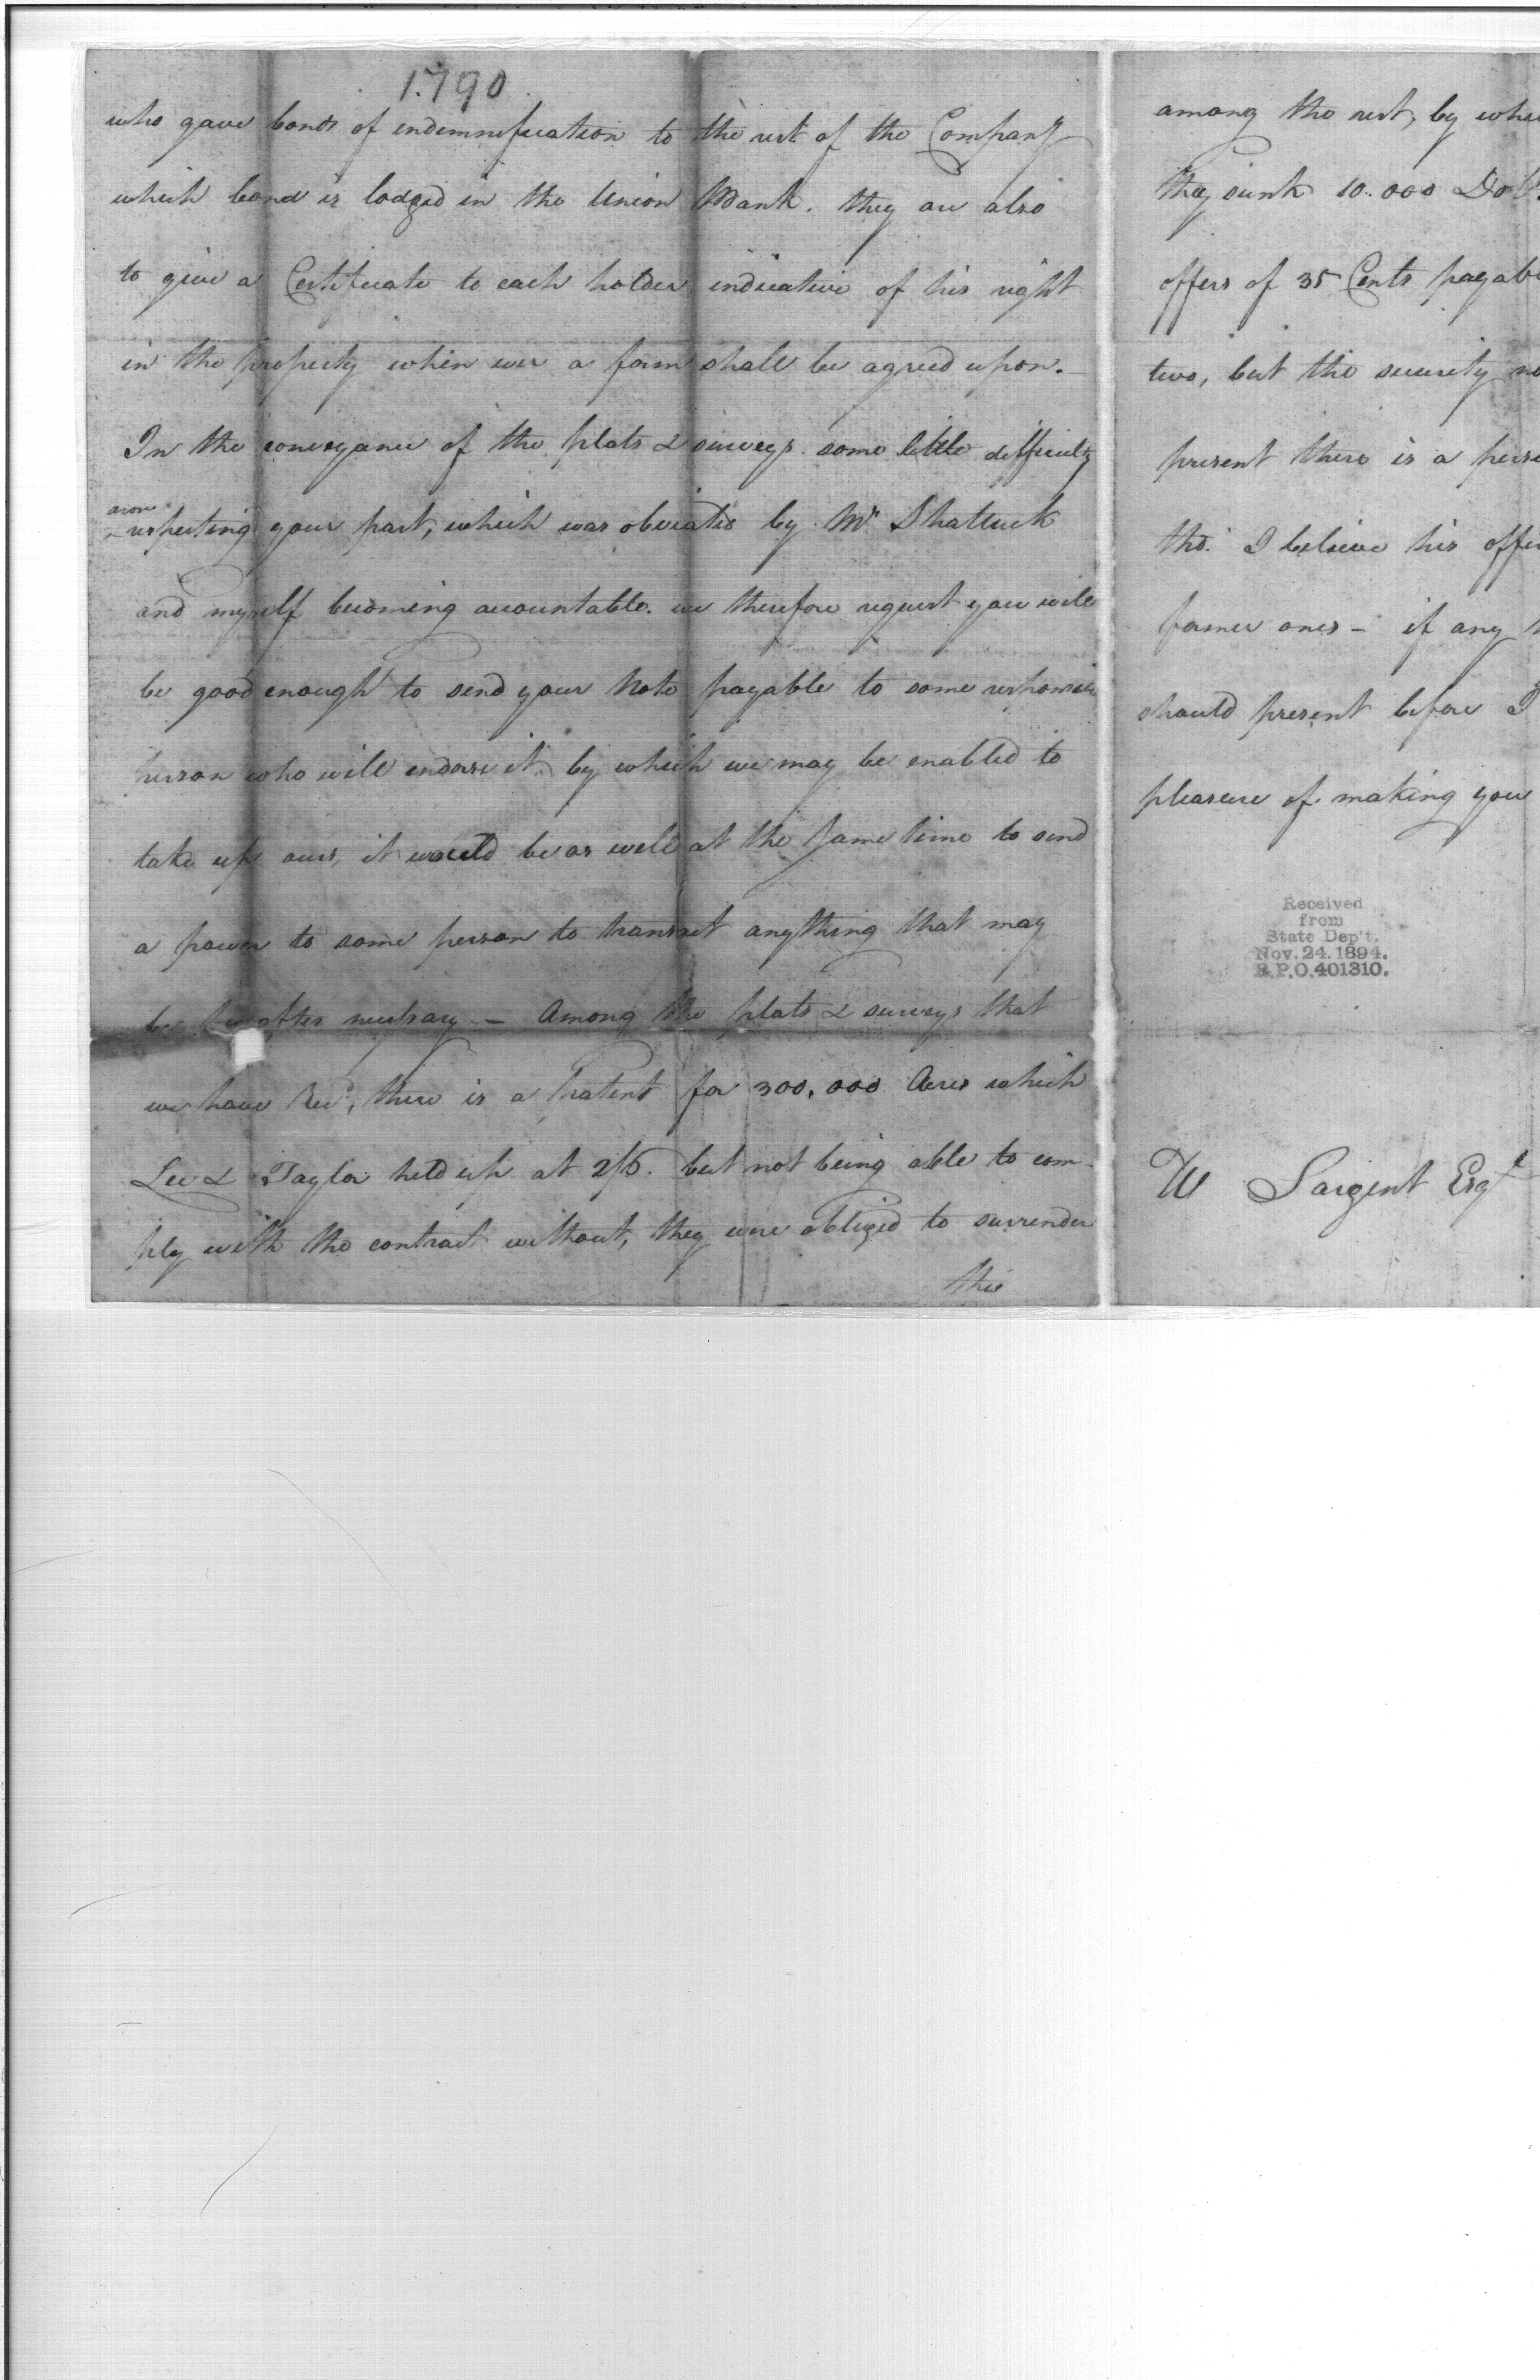 1790
who gave bonds of indemnification to the rest of the Company
which bond is lodged in the Union Bank. they are also
to give a Certificate to each holder indicative of his right
in the property when ever a form shall be agreed upon.
In the conveyance of the plats & surveys. some little difficulty
arose
respecting your part, which was obviated by Mr Shattuck
and myself becoming accountable. we therefore request you will
be good enough to send your Note payable to some responsible
person who will endorse it. by which we may be enabled to
take up ours, it would be as well at the same time to send
a power to some person to transact anything that may
be hereafter necessary — Among the plats & surveys that
we have Recd, there is a Patent for 300,000 Acres which
Lee & Taylor held up at 2/6. but not being able to com-
ply with the contract without, they were obliged to surrender
this
among the rest, by
they sunk 10.000
offers of 35 Cents
two, but the security
present there is a
tho. I believe his
former ones – if any
should present before I
pleasure of making you
Received
from
State Dep't.
Nov. 24. 1894.
R.P.O. 401310.
W Sargent Esqr